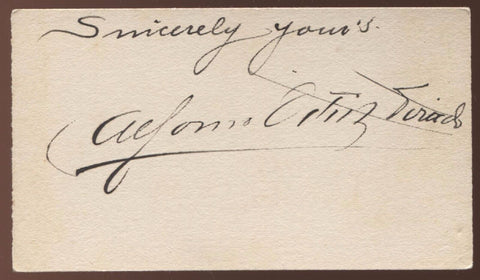 Sincerely yours.
Alfonso Ortiz Tirado